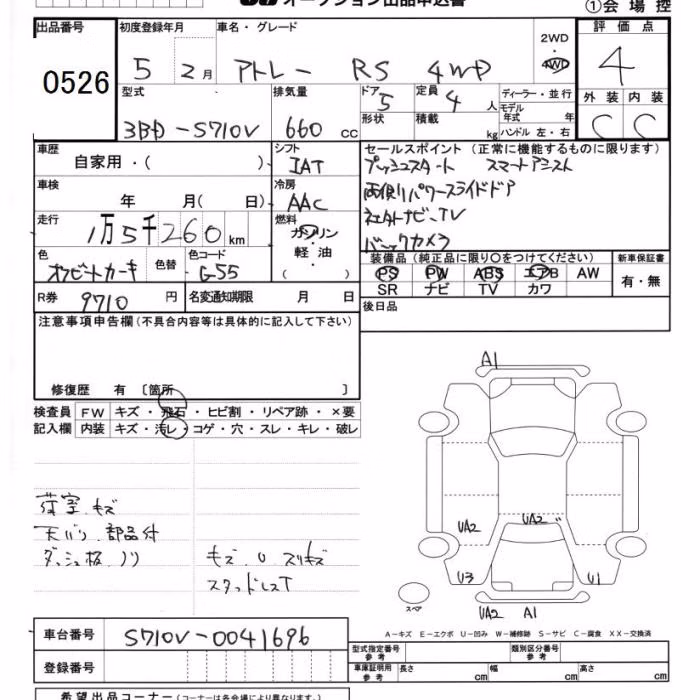 オークション出品申込書 ①会場控
出品番号 初度登録年月 車名・グレード 2WD・4WD 評価点
0526 5 2月 アトレー RS 4WD 4
型式 排気量 ドア 定員 ディーラー・並行 外装 内装
3BD-S710V 660cc 5 4人 モデル年式 年 C C
形状 積載 kg ハンドル 左・右
車歴 シフト セールスポイント (正常に機能するものに限ります)
自家用・( ) IAT プッシュスタート スマートアシスト
車検 冷房 両側パワースライドドア
年 月(日) AAC 社外ナビ・TV
走行 燃料 バックカメラ
1万5千260km ガソリン・軽油・
色 色替 色コード 装備品 (純正品に限り○をつけてください) 新車保証書
オフビートカーキ G-55 PS PW ABS エアB AW 有・無
SR ナビ TV カワ
R券 9710円 名変通知期限 月 日 後日品
注意事項申告欄(不具合内容等は具体的に記入して下さい)
修復歴 有 〔箇所 〕
検査員 FW キズ・飛石・ヒビ割・リペア跡・×要
記入欄 内装 キズ・汚レ・コゲ・穴・スレ・キレ・破レ
荷室.キズ
天バリ.部品付
ダッシュ板.ノリ キズ.U.スリキズ
スタッドレスT
A1
UA2 UA2
U3 U1
スペア UA2 A1
A-キズ E-エクボ U-凹み W-補修跡 S-サビ C-腐食 XX-交換済
車台番号 S710V-0041696 型式指定番号 参考 類別区分番号 参考
登録番号 車庫証明用 参考 長さ cm 幅 cm 高さ cm
希望出品コーナー (コーナーは各会場により異なります)